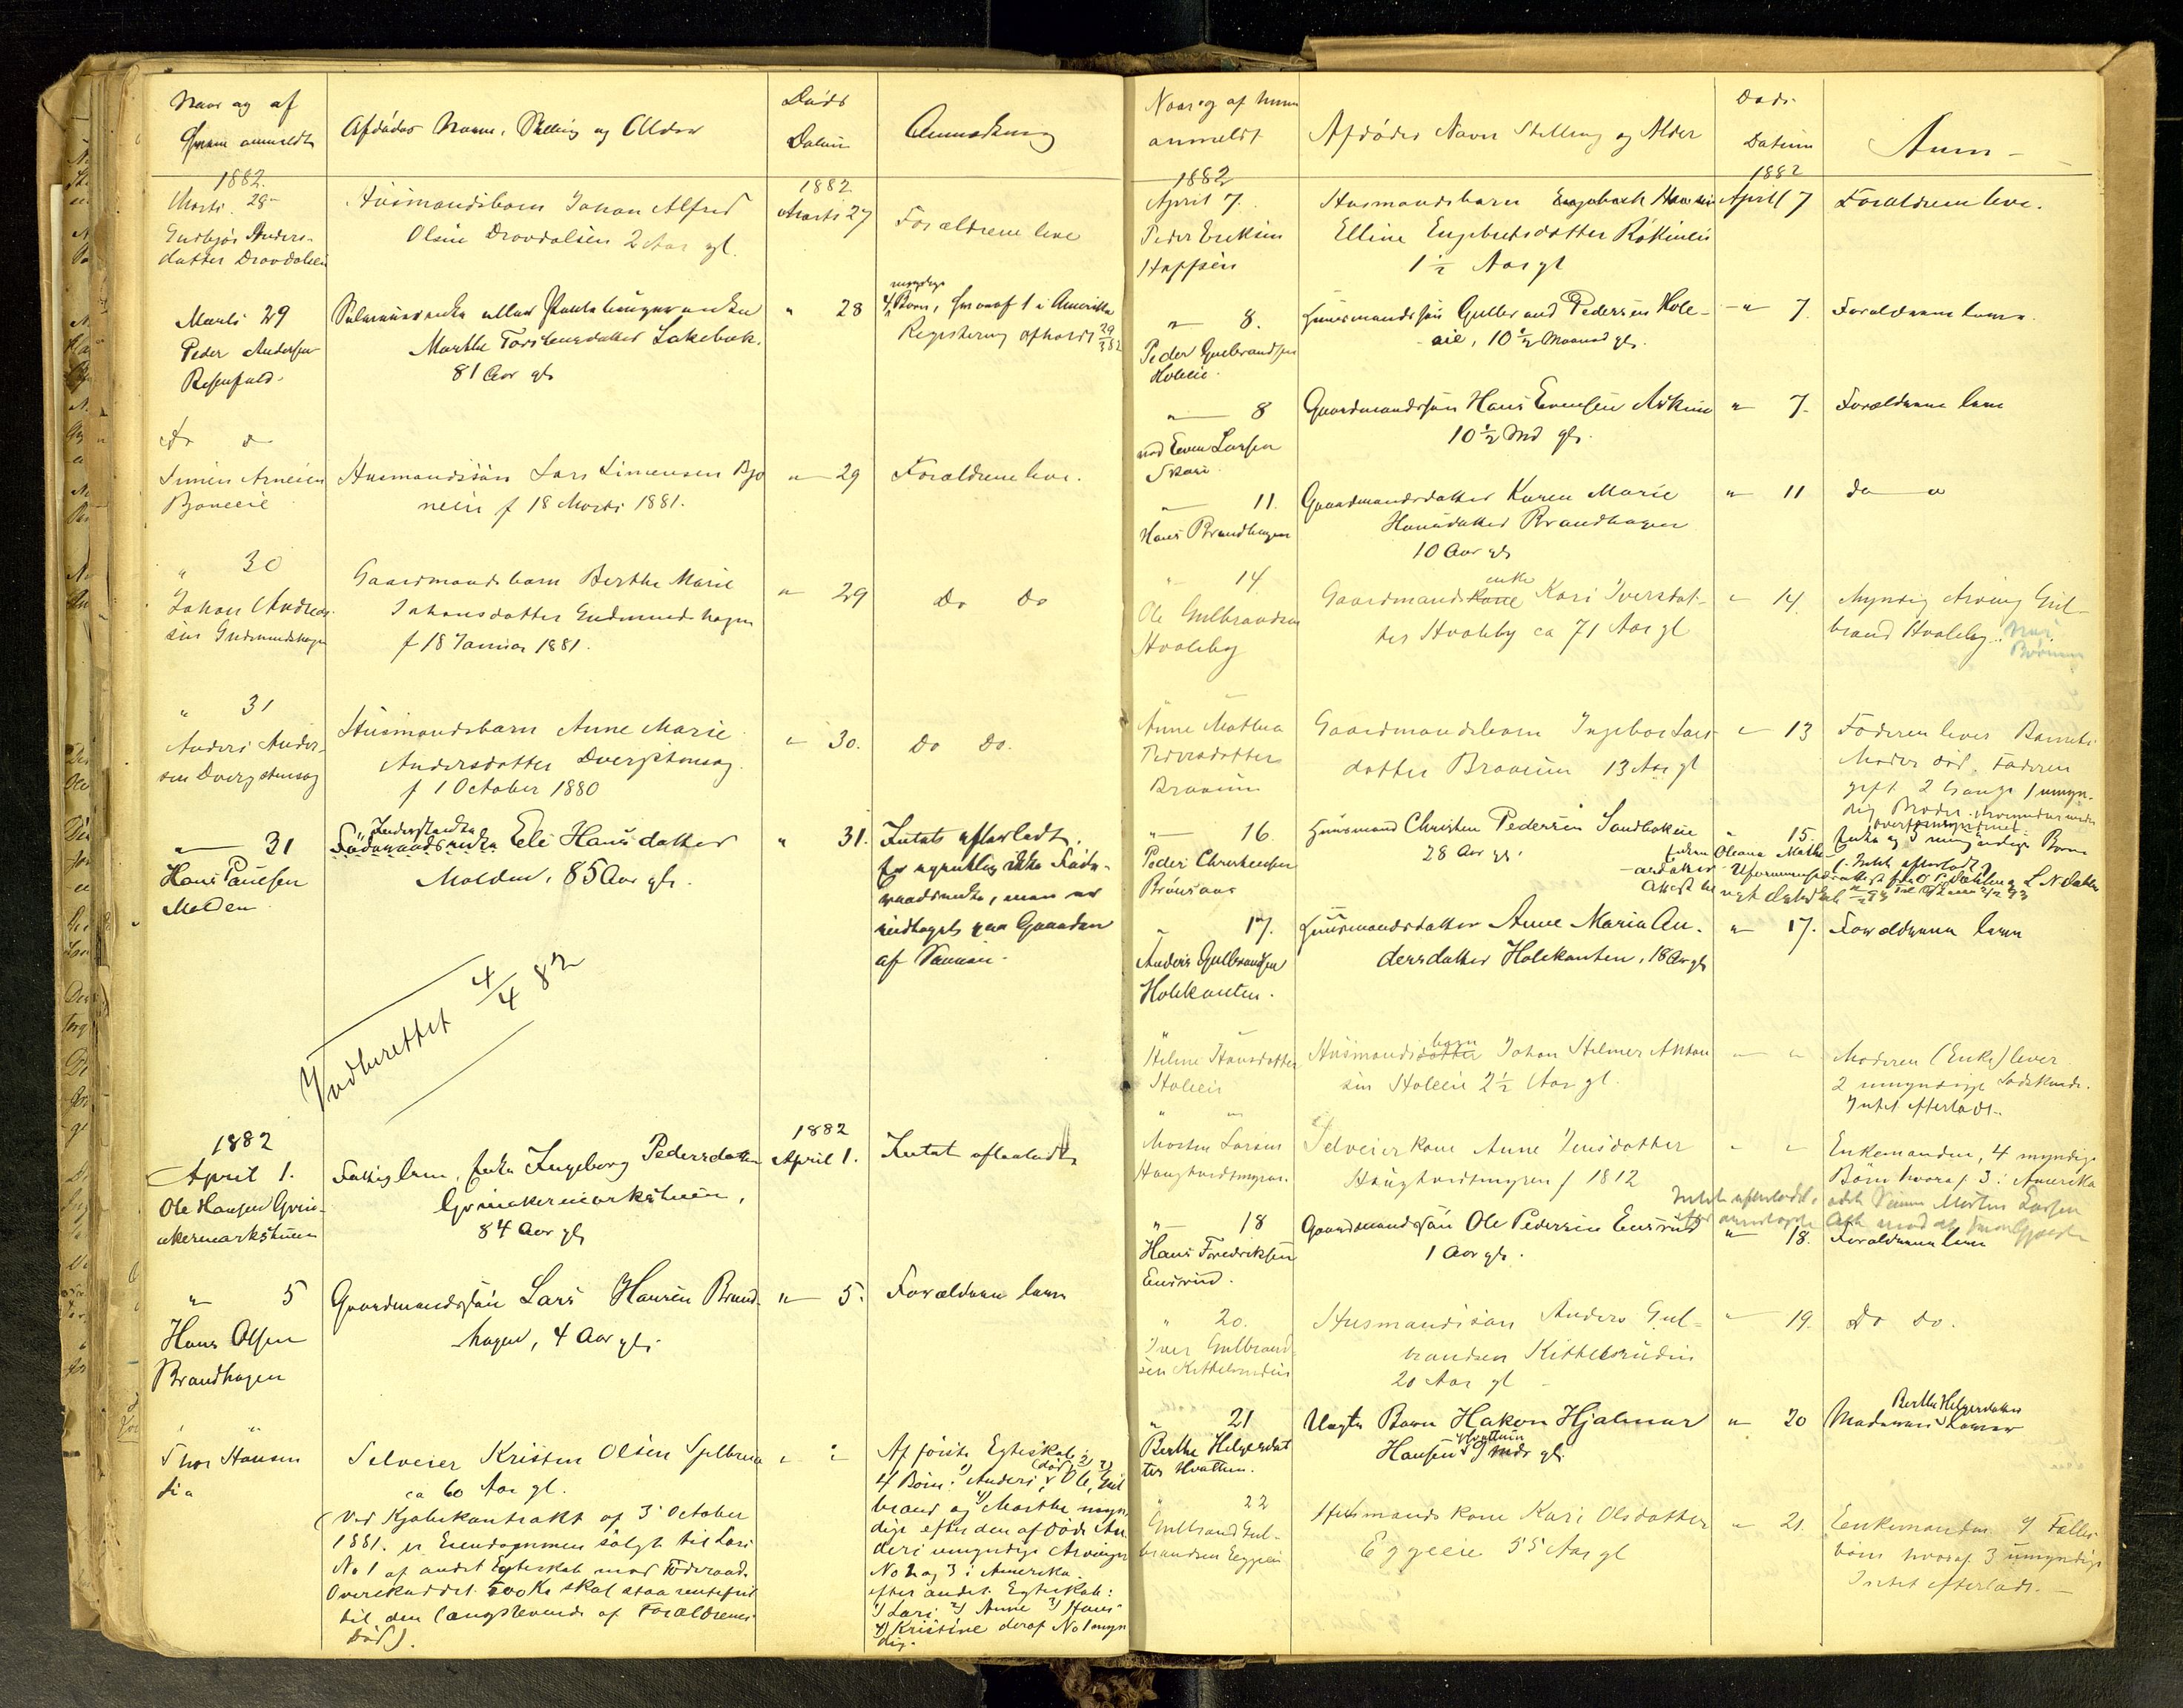 Naar og af
hvem anmeldt
Afdødes Navn, Stilling og Alder
Døds
Datum
Anmærkning
1882.
Marts 28
Gudbjør Anders-
datter Dravdalen
Husmandsbarn Johan Alfred
Olsen Dravdalen 2 Aar gl.
1882
Marts 27
Forældrene leve
Marts 29
Peder Andersen
Marthe Torstensdatter Lakebæk.
81 Aar gl.
" 28
myndige
4 Børn, hvoraf 1 i Amerika
Registrering afholdt 29/3 82
Do Do
Simen Arnesen
Bjoneeie
Husmandssøn Lars Simensen Bjo
neeie f 18 Marts 1881.
" 29
Forældrene leve.
" 30
Johan Andrea-
sen Gudmundshagen
Gaardmandsbarn Berthe Marie
Johansdatter Gudmundshagen
f 18 Januar 1881.
" 29
Do Do
" 31
Anders Ander-
sen Dvergstensag
Husmandsbarn Anne Marie
Andersdatter Dvergstensag.
f 1 October 1880
" 30.
Do Do.
" 31
Hans Paulsen
Molden
Inderstenke
Føderaadsenke Eli Hansdatter
Molden, 85 Aar gl.
" 31.
Intet efterladt,
er egentlig ikke Føde-
raadsenke, men er
indtaget paa Gaarden
af Naade.
Indberettet 4/4 82
1882
April 1.
Ole Hansen Grin-
akermarkstuen
Fattiglem, Enke Ingeborg Pedersdatter
Grinakermarkstuen,
84 Aar gl.
1882
April 1.
Intet efterladt
" 5
Hans Olsen
Brandhagen
Gaardmandssøn Lars Hansen Brand-
hagen, 4 Aar gl.
" 5.
Forældrene leve
" "
Thor Hansen
Selveier Kristen Olsen
ca 60 Aar gl.
(Ved Kjøbekontrakt af 3 October
1881. er Eiendommen solgt til Lars
No 1 af andet Egteskab mod Føderaad.
Overskuddet 500 Kr skal staa rentefrit
til den længstlevende af Forældrenes
Død).
" "
Af første Egteskab:
4 Børn: 1) Anders (død) 2) Ole, 3) Gul
brand og 4) Marthe myn
dige efter den afdøde An
ders umyndige Arvinger
No 2 og 3 i Amerika.
efter andet Egteskab:
1) Lars 2) Anne 3) Hans
4) Kristine deraf No 1 myn
dig.
Naar og af hvem
anmeldt
Afdødes Navn Stilling og Alder
Døds
Datum
Anm-
1882
April 7.
Peder Eriksen
Husmandsbarn
Elline Engebretsdatter Røkeneie
1 1/2 Aar gl
1882
April 7
Forældrene leve.
" 8.
Peder Gulbrandsen
Holeeie.
Huusmandssøn Gulbrand Pedersen Hole-
eie, 10 1/2 Maaned gl.
" 7.
Forældrene leve.
" 8
ved Even Larsen
Gaardmandssøn Hans Evensen
10 1/2 Md gl.
" 7.
Forældrene leve
" 11.
Hans Brandhagen
Gaardmandsdatter Karen Marie
Hansdatter Brandhagen
10 Aar gl
" 11
do "
" 14.
Ole Gulbrandsen
Hvaleby
enke
Gaardmandskone Kari Iversdat-
ter Hvaleby ca 71 Aar gl
" 14.
Myndig Arving Gul-
brand Hvaleby.
Anne Mathea
Pedersdatter
Braaten
Gaardmandsbarn Ingebor Lars-
datter Braaten 13 Aar gl
" 13
Faderen lever Barnets
Moder død. Faderen
gift 2 Gange 1 umyn-
dig Broder
" 16.
Peder Christensen
Huusmand Christen Pedersen Sandbakeie
28 Aar gl.
" 15.
Enke og 3 umyndige Børn
Intet efterladt
" 17.
Anders Gulbrandsen
Holekanten.
Huusmandsdatter Anne Maria An-
dersdatter Holekanten, 18 Aar gl
" 17.
Forældrene leve
" "
Helene Hansdatter
Holeeie
barn
Husmandsdatter Johan Hilmer Anton
sen Holeeie 2 1/2 Aar gl.
" "
Moderen (Enke) lever
2 umyndige Sødskende.
Intet efterladt.
" "
Morten Larsen
Haugtvedtmyren.
Selveierkone Anne Jensdatter
Haugtvedtmyren f 1812
" "
Enkemanden, 4 myndige
Børn hvoraf 3 i Amerika
Intet efterladt,
Morten Larsen
" 18
Hans Fredriksen
Ensrud.
Gaardmandssøn Ole Pedersen Ensrud
1 Aar gl.
" 18.
Forældrene leve
" 20.
Iver Gulbrand-
sen Kittelsrudeie
Husmandssøn Anders Gul-
brandsen Kittelsrudeie
20 Aar gl
" 19.
Do do.
" 21
Berthe Helgesdat
ter Hvattum.
Uægte Barn Hakon Hjalmar
Hansen Hvattum 9 mdr gl.
" 20
Berthe Helgesdatter
Moderen lever
" 22
Gulbrand Gul-
brandsen Eggeeie
Husmandskone Kari Olsdatter
Eggeeie 55 Aar gl
" 21.
Enkemanden 9 Fælles
børn hvoraf 3 umyndige
Intet efterladt.